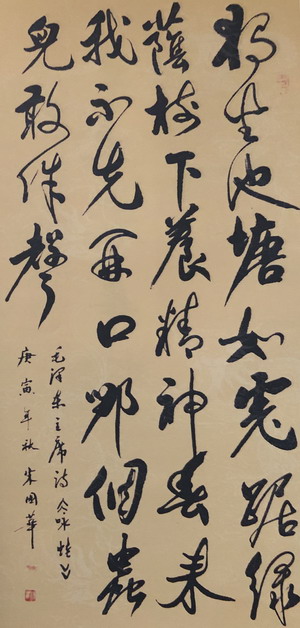 独坐池塘如虎踞绿
蔭树下養精神春来
我不先開口哪個蟲
兒敢作聲
毛澤東主席詩令咏蛙
庚寅年秋朱国華